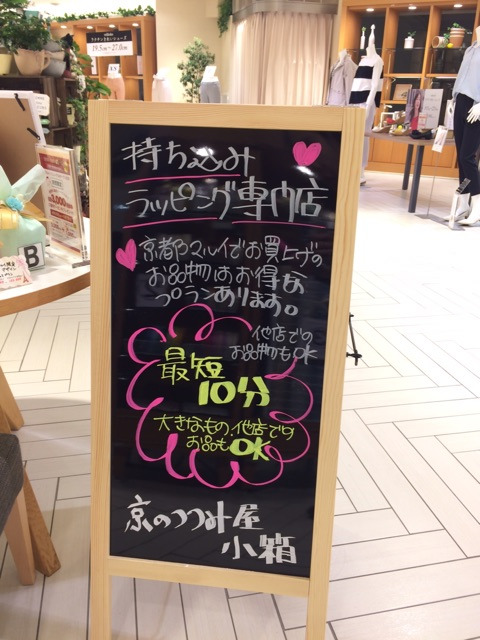 持ち込み
ラッピング専門店
京都マルイでお買上げの
お品物はお得な
プランあります。
他店での
お品物もOK
最短
10分
大きなもの、他店での
お品もOK
京のつつみ屋
小箱
19.5cm〜27.0cm
B